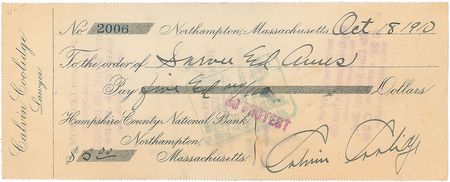 No 2006 Northampton, Massachusetts, Oct 18 1910
To the order of Ed Ames
Pay five Dollars
Hampshire County National Bank
Northampton,
$ 5.00 Massachusetts
Calvin Coolidge
NO PROTEST
Calvin Coolidge
Lawyer